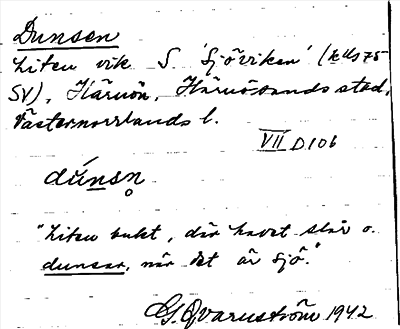 Dunsen
Liten vik S. 'Sjöviken' (kUs 75
SV), Härnön, Härnösands stad,
Västernorrlands l.
VII D106
dúnsn̥
"Liten bukt, där havet slår o.
dunsar, när det är sjö."
G. Qvarnström 1942